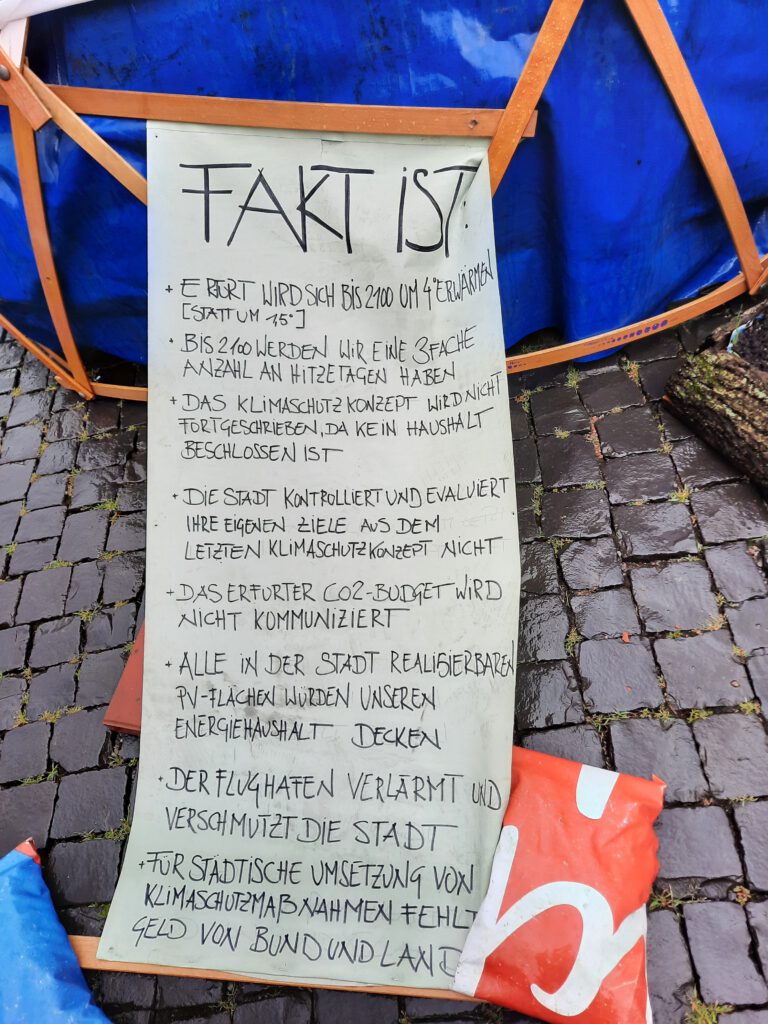 FAKT IST:
+ ERFURT WIRD SICH BIS 2100 UM 4° ERWÄRMEN
[STATT UM 1,5°]
+ BIS 2100 WERDEN WIR EINE 3FACHE
ANZAHL AN HITZETAGEN HABEN
+ DAS KLIMASCHUTZKONZEPT WIRD NICHT
FORTGESCHRIEBEN, DA KEIN HAUSHALT
BESCHLOSSEN IST
+ DIE STADT KONTROLLIERT UND EVALUIERT
IHRE EIGENEN ZIELE AUS DEM
LETZTEN KLIMASCHUTZKONZEPT NICHT
+ DAS ERFURTER CO2-BUDGET WIRD
NICHT KOMMUNIZIERT
+ ALLE IN DER STADT REALISIERBAREN
PV-FLÄCHEN WÜRDEN UNSEREN
ENERGIEHAUSHALT DECKEN
+ DER FLUGHAFEN VERLÄRMT UND
VERSCHMUTZT DIE STADT
+ FÜR STÄDTISCHE UMSETZUNG VON
KLIMASCHUTZMAßNAHMEN FEHLT
GELD VON BUND UND LAND